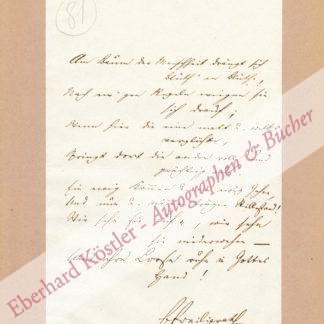 81
Am Baum der Menschheit drängt sich
Blüth' an Blüthe,
Nach ew'gen Regeln wiegen sie
sich drauf;
Wenn hier die eine matt u. welk
verglühte,
Springt dort die andre voll und
prächtig
Ein ewig Kommen u.
Und nun u. nimmer träger Stillestand!
Wir sehn sie auf, wir sehn
sie niederwehn –
Loose ruhn in Gottes
Hand!
FFreiligrath
Eberhard Köstler - Autographen & Bücher